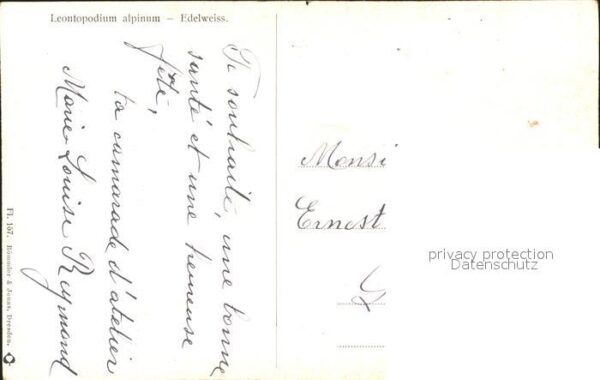 Leontopodium alpinum – Edelweiss.
Te souhaite, une bonne
santé et une heureuse
fête,
ta camarade d'atelier
Marie Louise Reymond
Monsi
Ernest
privacy protection
Datenschutz
Fl. 157. Römmler & Jonas, Dresden.